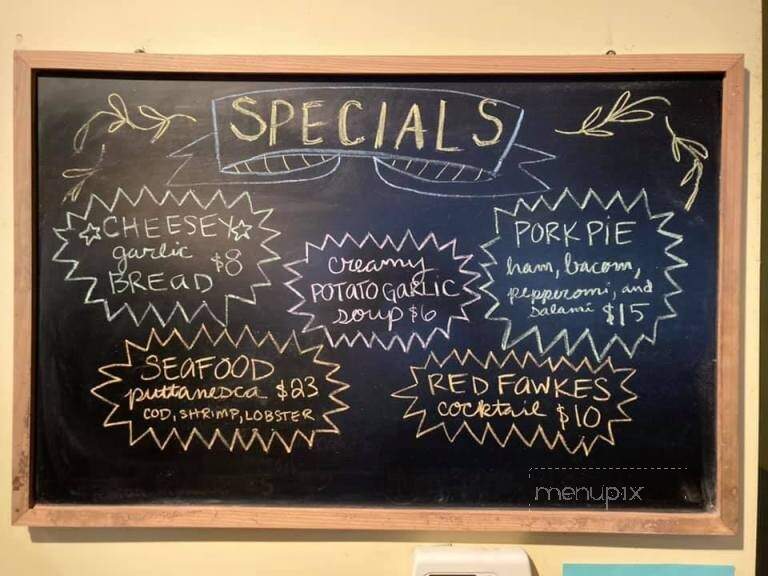 SPECIALS
CHEESEY
garlic $8
BREAD
creamy
POTATO GARLIC
soup $6
PORK PIE
ham, bacom,
pepperomi, and
salami $15
SEAFOOD
puttanesca $23
COD, SHRIMP, LOBSTER
RED FAWKES
cocktail $10
menupix